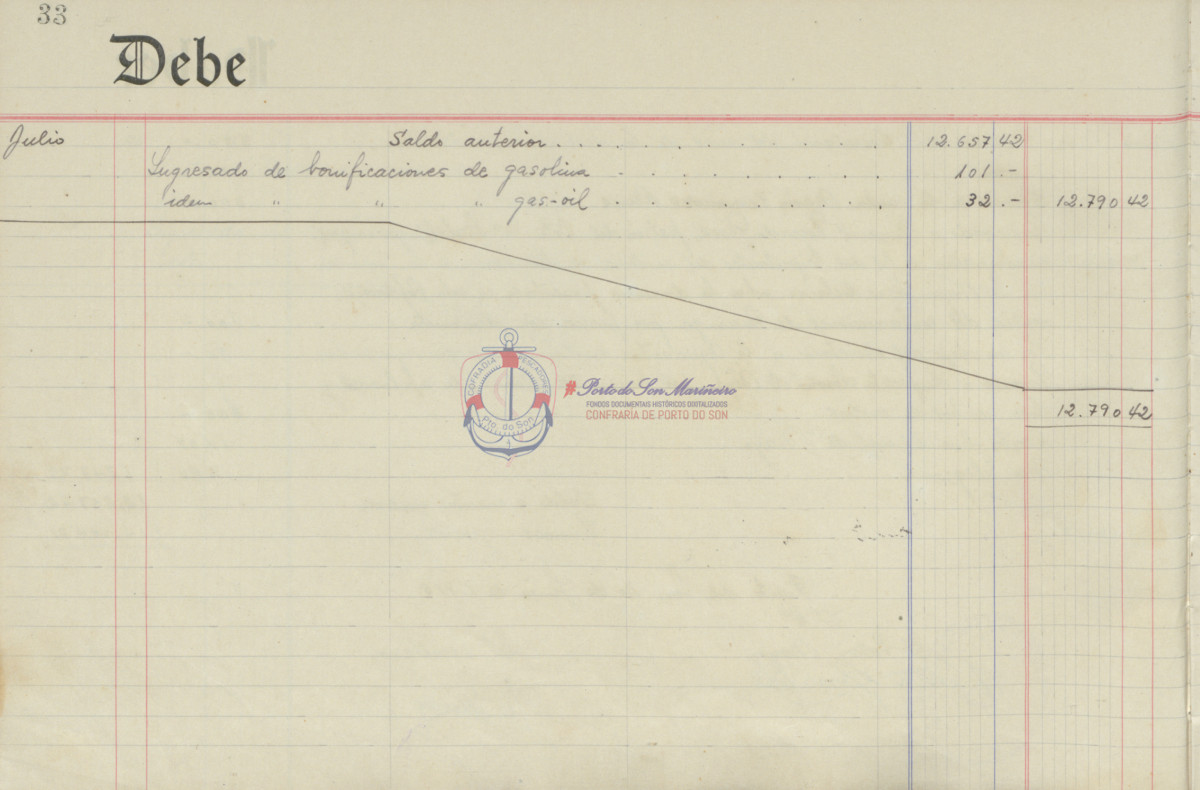 33
Debe
Julio Saldo anterior . . . . . . . . . 12.657 42
Ingresado de bonificaciones de gasolina . . . . . . . . 101 .-
idem " " " gas-oil . . . . . . . . 32 .- 12.790 42
COFRADIA PESCADORES
Pto. do Son
#Porto do Son Mariñeiro
FONDOS DOCUMENTAIS HISTÓRICOS DIGITALIZADOS
CONFRARÍA DE PORTO DO SON
12.790 42